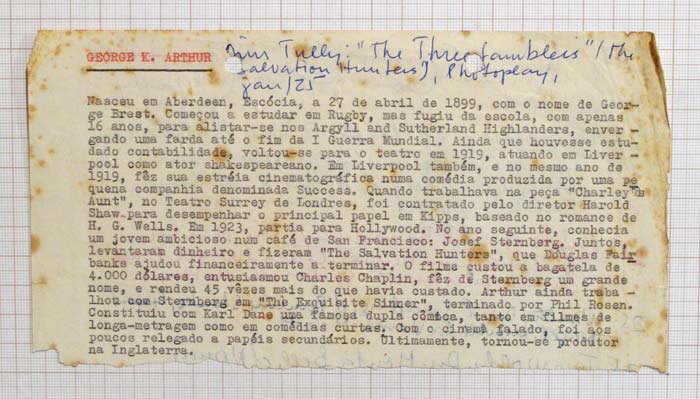 GEORGE K. ARTHUR
Jim Tully: "The Three Gamblers" (The
Salvation Hunters), Photoplay,
jan/25
Nasceu em Aberdeen, Escócia, a 27 de abril de 1899, com o nome de Geor-
ge Brest. Começou a estudar em Rugby, mas fugiu da escola, com apenas
16 anos, para alistar-se nos Argyll and Sutherland Highlanders, enver -
gando uma farda até o fim da I Guerra Mundial. Ainda que houvesse estu-
dado contabilidade, voltou-se para o teatro em 1919, atuando em Liver -
pool como ator shakespeareano. Em Liverpool também, e no mesmo ano de
1919, fêz sua estréia cinematográfica numa comédia produzida por uma pe
quena companhia denominada Success. Quando trabalhava na peça "Charley's
Aunt", no Teatro Surrey de Londres, foi contratado pelo diretor Harold
Shaw para desempenhar o principal papel em Kipps, baseado no romance de
H. G. Wells. Em 1923, partia para Hollywood. No ano seguinte, conhecia
um jovem ambicioso num café de San Francisco: Josef Sternberg. Juntos,
levantaram dinheiro e fizeram "The Salvation Hunters", que Douglas Fair
banks ajudou financeiramente a terminar. O filme custou a bagatela de
4.000 dólares, entusiasmou Charles Chaplin, fêz de Sternberg um grande
nome, e rendeu 45 vêzes mais do que havia custado. Arthur ainda traba -
lhou com Sternberg em "The Exquisite Sinner", terminado por Phil Rosen.
Constituiu com Karl Dane uma famosa dupla cômica, tanto em filmes de
longa-metragem como em comédias curtas. Com o cinema falado, foi aos
poucos relegado a papéis secundários. Ùltimamente, tornou-se produtor
na Inglaterra.